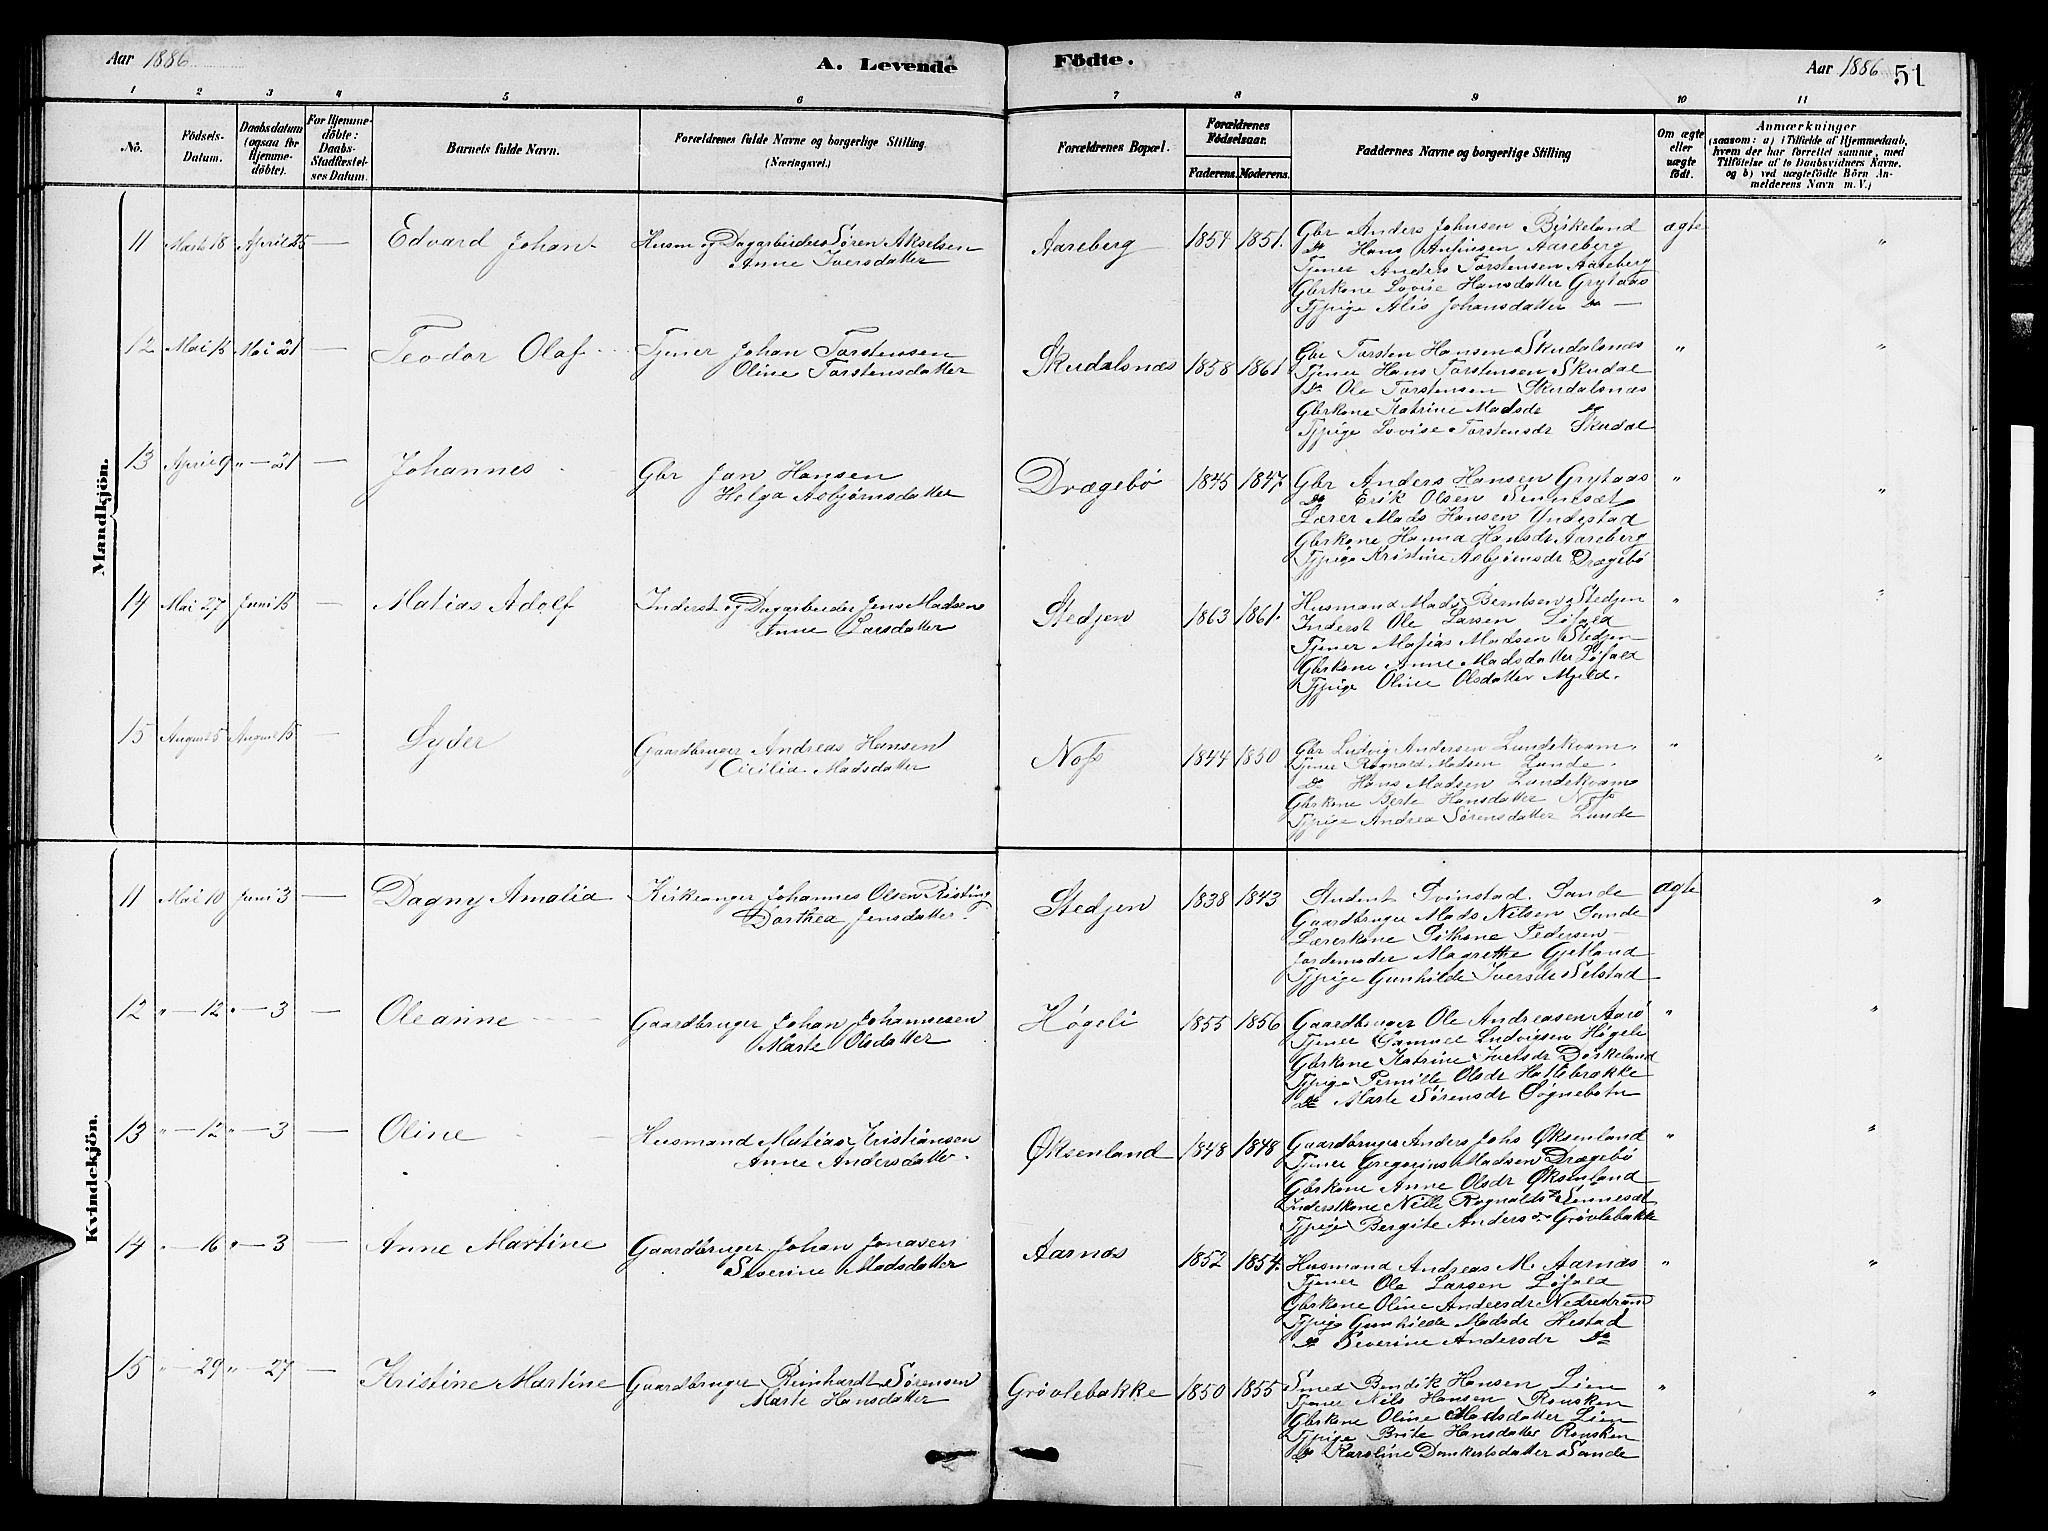 Aar 1886
A. Levende
Födte.
Aar 1886
51
1 2 3 4 5 6 7 8 9 10 11
No.
Födsels-
Datum.
Daabsdatum
(ogsaa for
Hjemme-
döbte).
For Hjemme-
döbte:
Daabs-
Stadfæstel-
ses Datum.
Barnets fulde Navn.
Forældrenes fulde Navne og borgerlige Stilling.
(Næringsvei.)
Forældrenes Bopæl.
Forældrenes
Födselsaar.
Faderens.
Moderens.
Faddernes Navne og borgerlige Stilling
Om ægte
eller
uægte
født.
Anmærkninger
(saasom: a) i Tilfælde af Hjemmedaab,
hvem der har forrettet samme, med
Tilføielse af to Daabsvidners Navne,
og b) ved uægtefödte Börn An-
melderens Navn m. V.)
Mandkjön.
11 Marts 18 April 25 — Edvard Johan Husm og Dagarbeider Søren Akselsen
Anne Iversdatter
Aareberg 1854 1851. ægte "
Gbr Anders Johnsen Birkeland
Do Hans Aareberg
Tjener Anders Torstensen Aareberg
Gbrkone Lovise Hansdatter Grytaas
Tjpige Alis Johansdatter Do —
12 Mai 15 Mai 21 — Teodor Olaf Tjener Johan Torstensen
Oline Torstensdatter
Skudalsnæs 1858 1861 " "
Gbr Torsten Hansen Skudalsnæs
Tjener Hans Torstensen Skudal
Do Ole Torstensen Skudalsnæs
Gbrkone Katrine Madsdr Do
Tjpige Lovise Torstensdr Skudal
13 April 9 " — 21 — Johannes Gbr Jan Hansen
Helga Asbjørnsdatter
Drægebø 1845 1847. " "
Gbr Anders Hansen Grytaas
Do Erik Olsen Sinnesæt
Lærer Mads Hansen Yndestad
Gbrkone Hanna Hansdr Aareberg
Tjpige Kristine Asbjørnsdr Drægebø
14 Mai 27 Juni 15 — Matias Adolf Inderst og Dagarbeider Jens Madsen
Anne Larsdatter
Stedjen 1863 1861. " "
Husmand Mads Berntsen Stedjen
Inderst Ole Larsen Løfald
Tjener Matias Madsen Stedjen
Gbrkone Anne Madsdatter Løfald
Tjpige Oline Olsdatter Mjeld.
15 August 5 August 15 — Lyder Gaardbruger Andreas Hansen
Cicilia Madsdatter
Nofs 1844 1850 " "
Gbr Ludvig Andersen Lundekvam
Tjener Rognald Madsen Lunde
Do Hans Madsen Lundekvam
Gbrkone Berte Hansdatter Nofs
Tjpige Andrea Sørensdatter Lunde
Kvindekjön.
11 Mai 10 Juni 3 — Dagny Amalia Kirkesanger Johannes Olsen Risting
Dorthea Jensdatter.
Stedjen 1838 1843 ægte "
Student Svinstad Sande
Gaardbruger Mads Nilsen Sande
Lærerkone Pedersen
Jordemoder Magrethe Gjetland
Tjpige Gunhilde Iversdr Selstad
12 " — 12 " — 3 — Oleanne Gaardbruger Johan Johannesen
Marte Olsdatter
Høgeli 1855 1856 " "
Gaardbruger Ole Andreasen Aarø
Tjener Samuel Ludvigsen Høgeli
Gbrkone Katrine Iversdr Dørkeland
Tjpige Pernille Olsdr Hattebrække
Do Marte Sørensdr Sognebotn
13 " — 12 " — 3 — Oline Husmand Matias Kristiansen
Anne Andersdatter.
Øksenland 1848 1848 " "
Gaardbruger Anders Johs Øksenland
Tjener Gregorius Madsen Drægebø
Gbrkone Anne Olsdr Øksenland
Inderstkone Nille Rognaldsdr Sinnesæt
Tjpige Bergite Andersdr Grövlebakke
14 " — 16 " — 3 — Anne Martine Gaardbruger Johan Jonasen
Severine Madsdatter
Aarnæs 1852 1854. " "
Husmand Andreas M. Aarnæs
Tjener Ole Larsen Løfald
Gbrkone Oline Andersdr Nedrestrand
Tjpige Gunhilde Madsdr Hestad
Do Severine Andersdr Do
15 " — 29 " — 27 — Kristine Martine Gaardbruger Reinhardt Sørensen
Marte Hansdatter
Grövlebakke 1850 1855 " "
Smed Bendik Hansen Lien
Tjener Nils Hansen Rousken
Gbrkone Oline Madsdatter Lien
Tjpige Brite Hansdatter Rousken
Do Karoline Dankertsdatter Sande